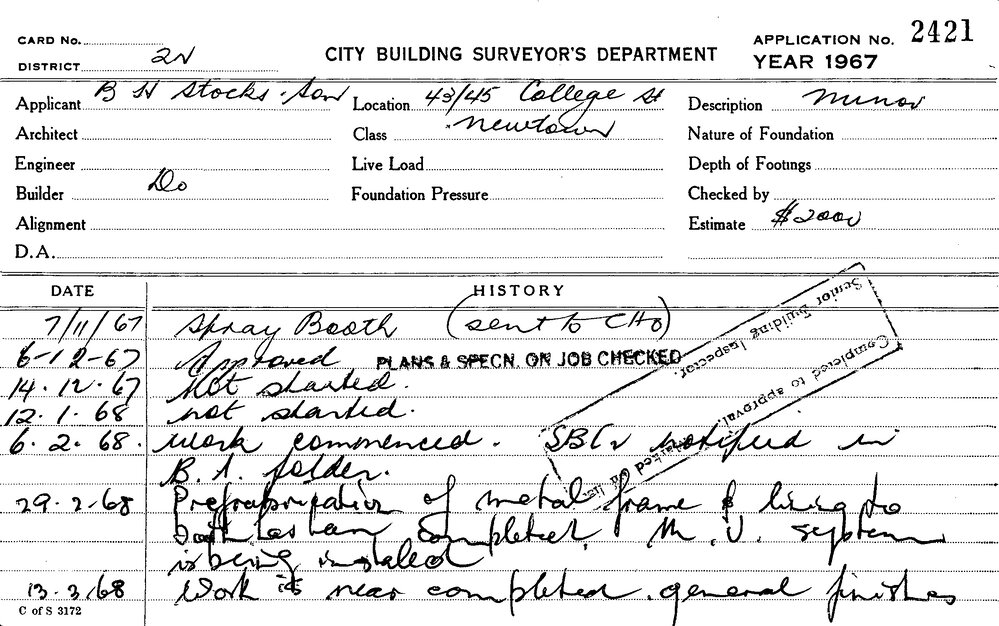 CARD No.
DISTRICT 2N
CITY BUILDING SURVEYOR'S DEPARTMENT
APPLICATION No. 2421
YEAR 1967
Applicant B H Stocks & Son Location 43/45 College St Description Minor
Architect Class Newtown Nature of Foundation
Engineer Live Load Depth of Footings
Builder Do Foundation Pressure Checked by
Alignment Estimate $2000
D.A.
DATE HISTORY
7/11/67 Spray Booth (sent to CHO)
6-12-67 Approved PLANS & SPECN. ON JOB CHECKED
14.12.67 Not started.
12.1.68 not started.
6.2.68. work commenced. notified in
B.A. folder.
29.2.68 of metal frame & lining to
completed. M.V. system
is being installed
13.3.68 Work is near completed. general finishes
Completed to approval.
Senior Building Inspector.
C of S 3172